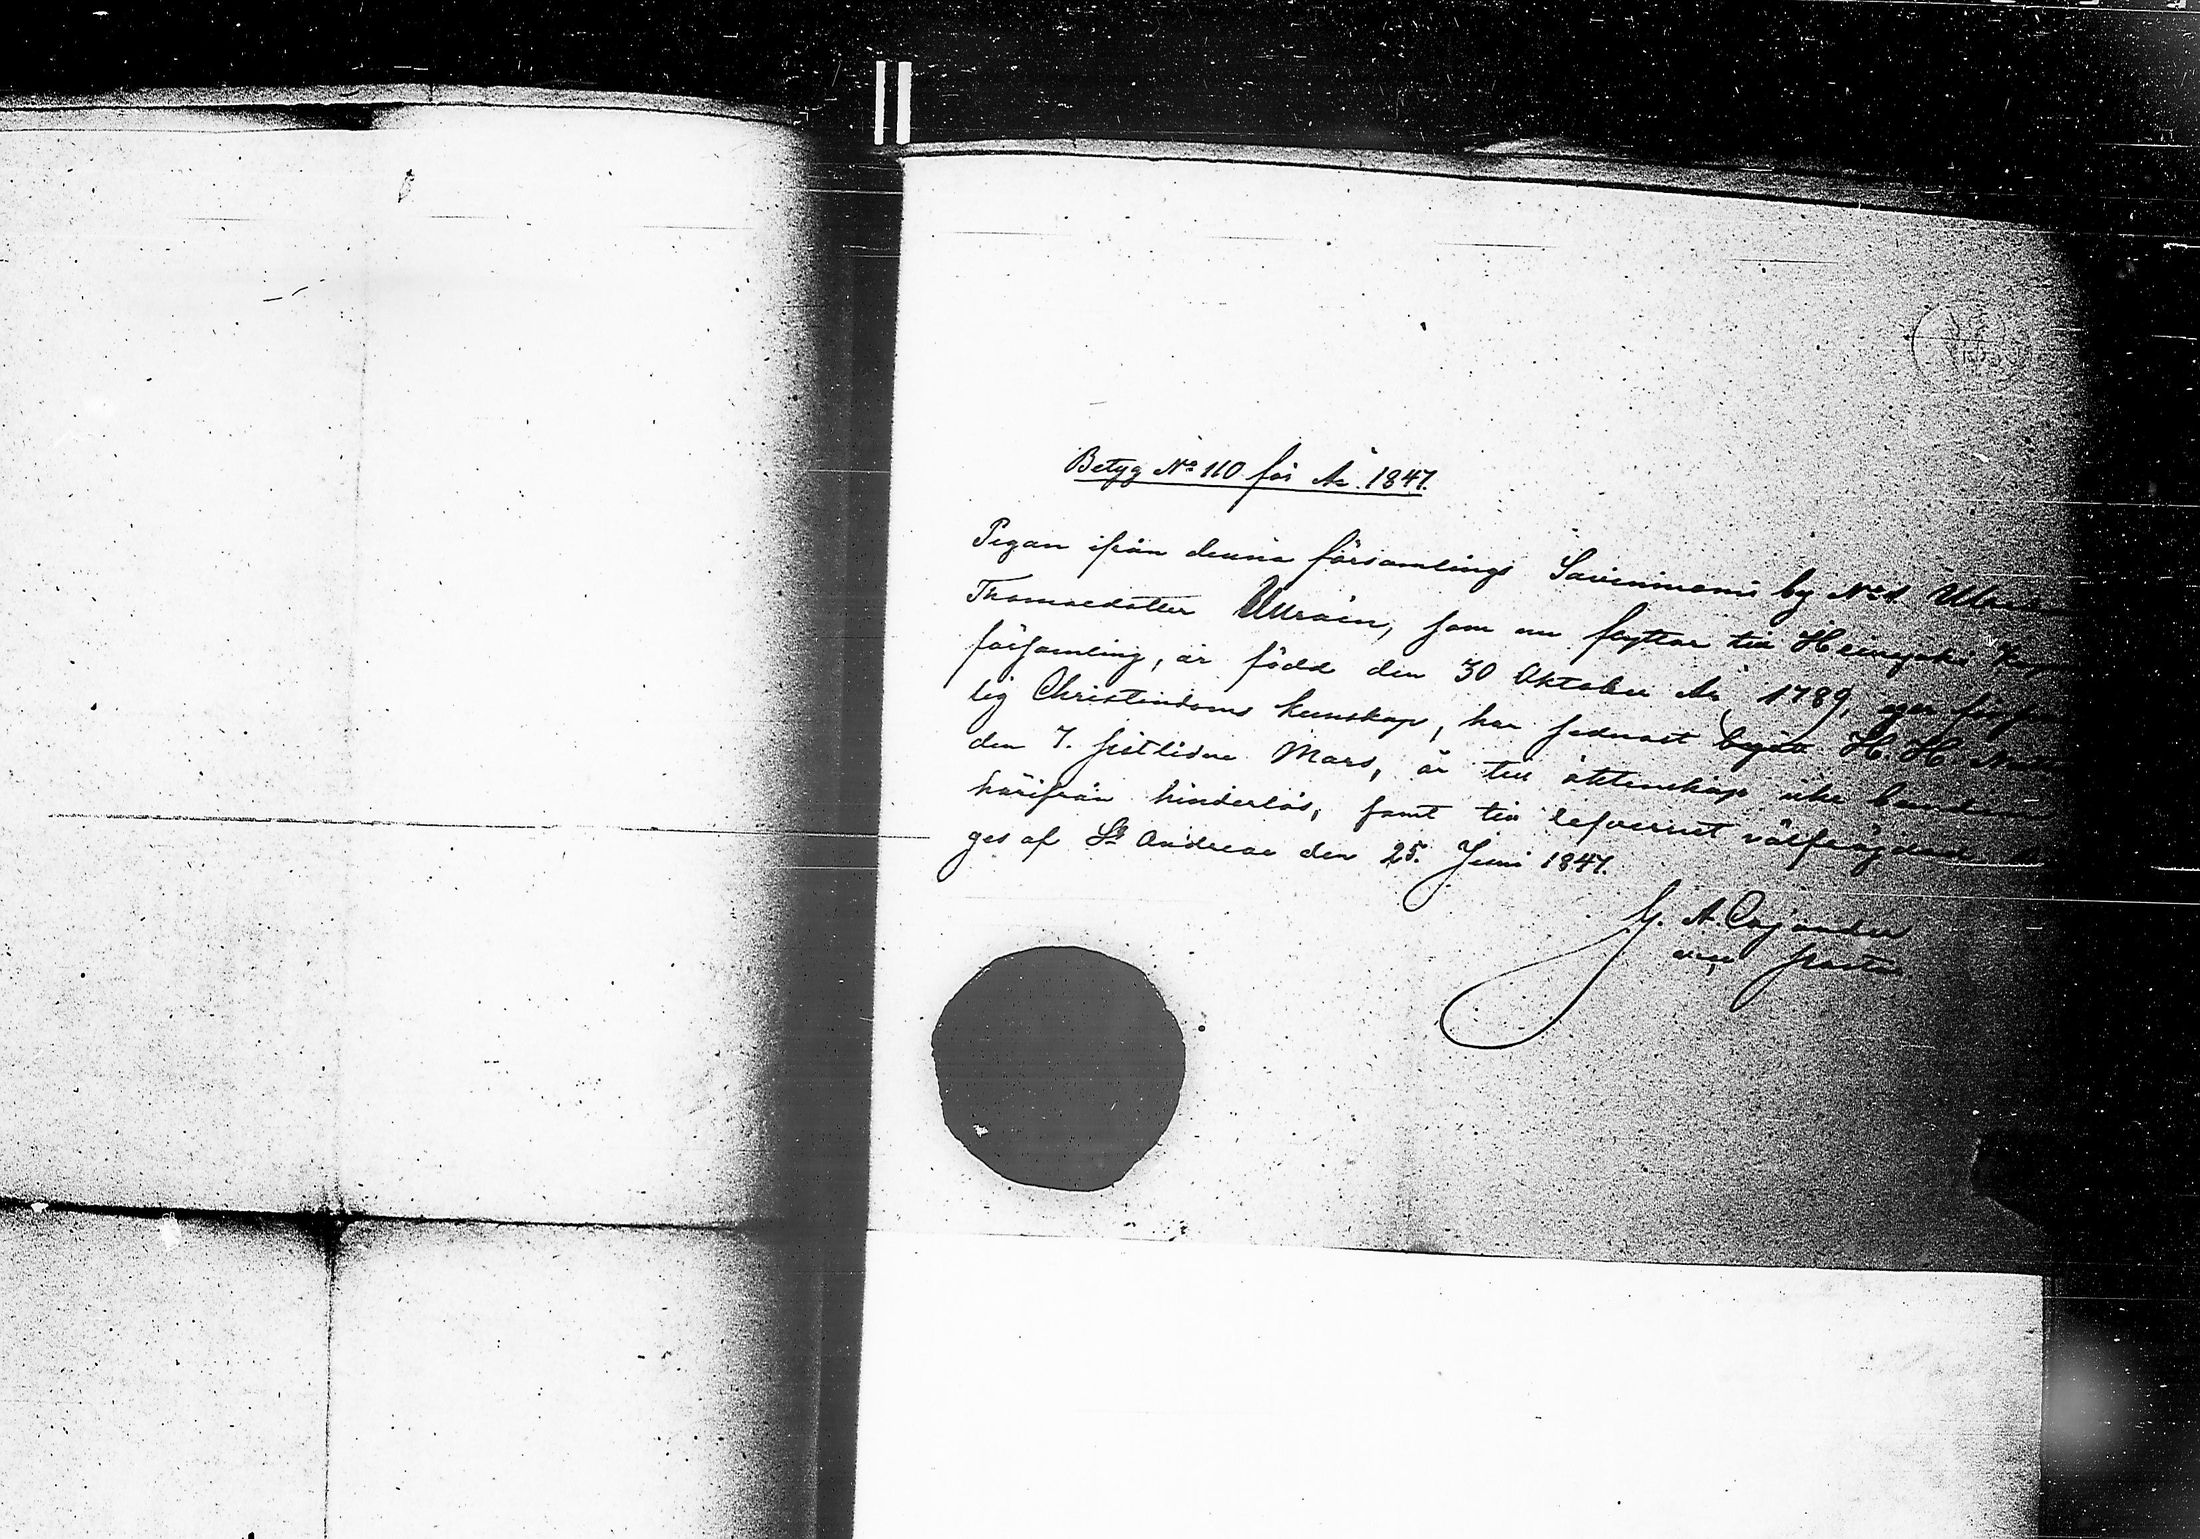 Betyg No 110 för År 1847.
Pigan ifrån denna församlings Savinimemi by No 1
Thomasdotter Ukrain, som nu flyttar till Heinjoki
församling, är född den 30 Oktober År 1789, eger förfar
lig Christendoms kunskap, har sednast begått H. H.
den 7. sistlidne Mars, är till äktenskap icke bunden
härifrån hinderlös, samt till lefvernet välfräjdad
ges af St Andreae den 25. Juni 1847.
G. A. Cajander
vice pastor